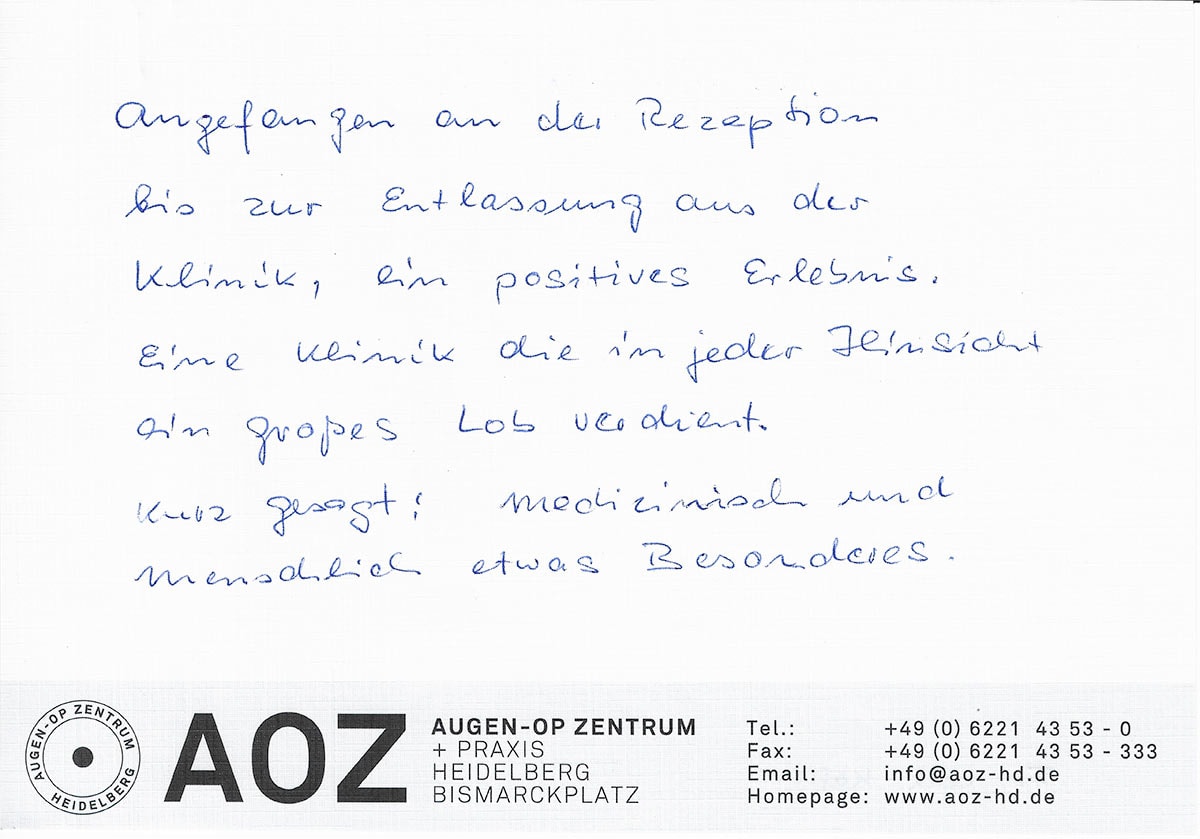 Angefangen an der Rezeption
bis zur Entlassung aus der
Klinik, ein positives Erlebnis.
Eine Klinik die in jeder Hinsicht
ein großes Lob verdient.
Kurz gesagt: Medizinisch und
Menschlich etwas Besonderes.
AUGEN-OP ZENTRUM
HEIDELBERG
AOZ
AUGEN-OP ZENTRUM
+ PRAXIS
HEIDELBERG
BISMARCKPLATZ
Tel.: +49 (0) 6221 43 53 - 0
Fax: +49 (0) 6221 43 53 - 333
Email: info@aoz-hd.de
Homepage: www.aoz-hd.de